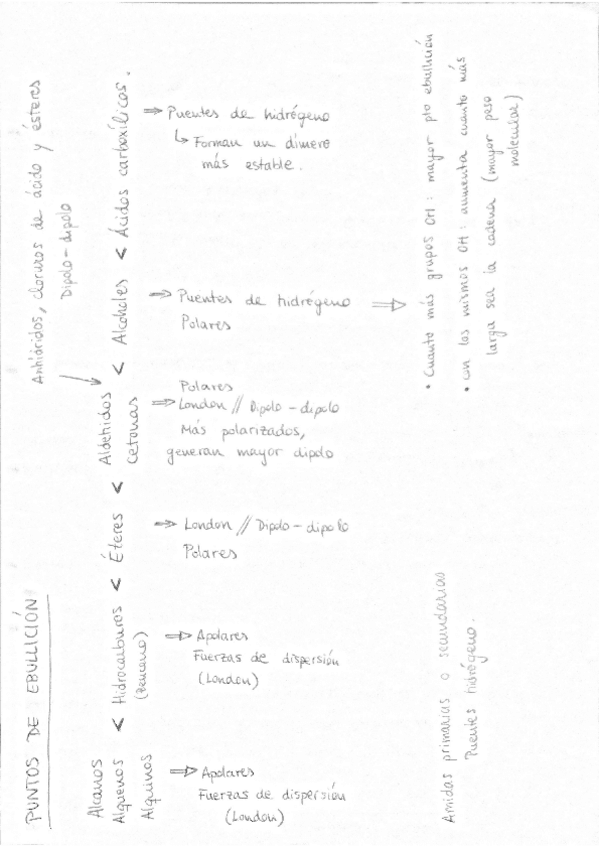 PUNTOS DE EBULLICIÓN
Anhídridos, cloruros de ácido y ésteres
Dipolo-dipolo
Alcanos
Alquenos
Alquinos
< Hidrocarburos
(Benceno)
< Éteres
< Aldehidos
Cetonas
< Alcoholes
< Ácidos carboxílicos.
⇒ Apolares
Fuerzas de dispersión
(London)
⇒ Apolares
Fuerzas de dispersión
(London)
⇒ London // Dipolo-dipolo
Polares
Polares
⇒ London // Dipolo-dipolo
Más polarizados,
generan mayor dipolo
⇒ Puentes de hidrógeno
Polares
⇒
• Cuanto más grupos OH: mayor pto ebullición
• con los mismos OH: aumenta cuanto más
larga sea la cadena (mayor peso
molecular)
⇒ Puentes de hidrógeno
↳ Forman un dímero
más estable.
Amidas primarias o secundarias
Puentes hidrógeno.